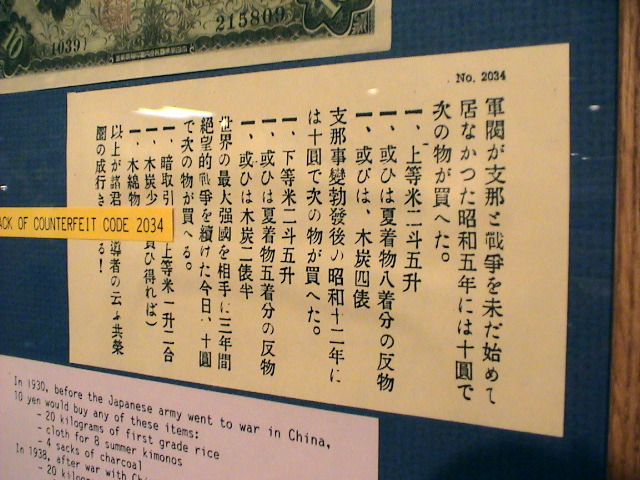 215809
(1039)
No. 2034
軍閥が支那と戰爭を未だ始めて
居なかつた昭和五年には十圓で
次の物が買へた。
一、上等米二斗五升
一、或ひは夏着物八着分の反物
一、或びは、木炭四俵
支那事變勃發後の昭和十二年に
は十圓で次の物が買へた。
一、下等米二斗五升
一、或ひは夏着物五着分の反物
一、或ひは木炭二俵半
世界の最大强國を相手に三年間
絕望的戰爭を續けた今日、十圓
で次の物が買へる。
一、暗取引 上等米一升二合
一、木炭少 買ひ得れば)
一、木綿物
以上が諸君 導者の云ふ共榮
圈の成行き る!
ACK OF COUNTERFEIT CODE 2034
In 1930, before the Japanese army went to war in China,
10 yen would buy any of these items:
- 20 kilograms of first grade rice
- cloth for 8 summer kimonos
- 4 sacks of charcoal
In 1938, after war with Chi
- 20 kilo